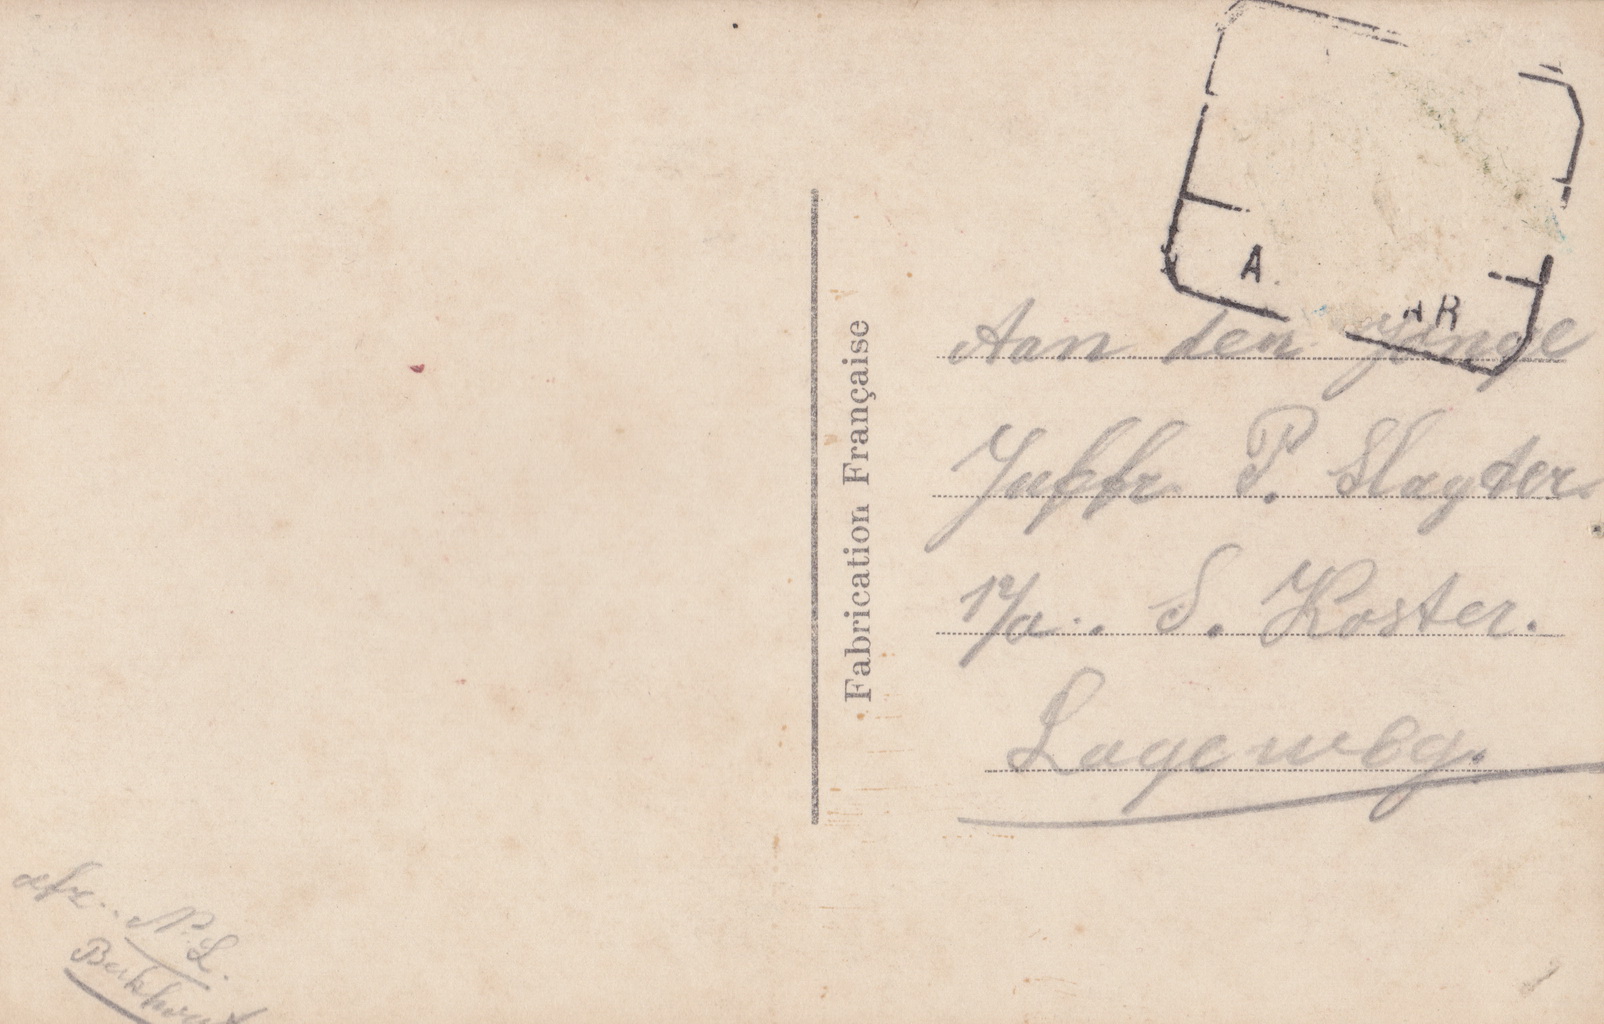 A. AR
Aan den Jonge
Juffr. P. Slagter.
p/a.. S. Koster.
Lageweg.
Fabrication Française
afz.. N. L.
Berkhout